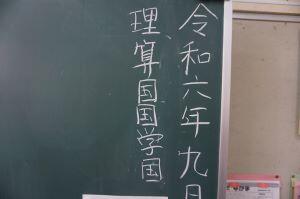 令和六年九日
理算国国学国